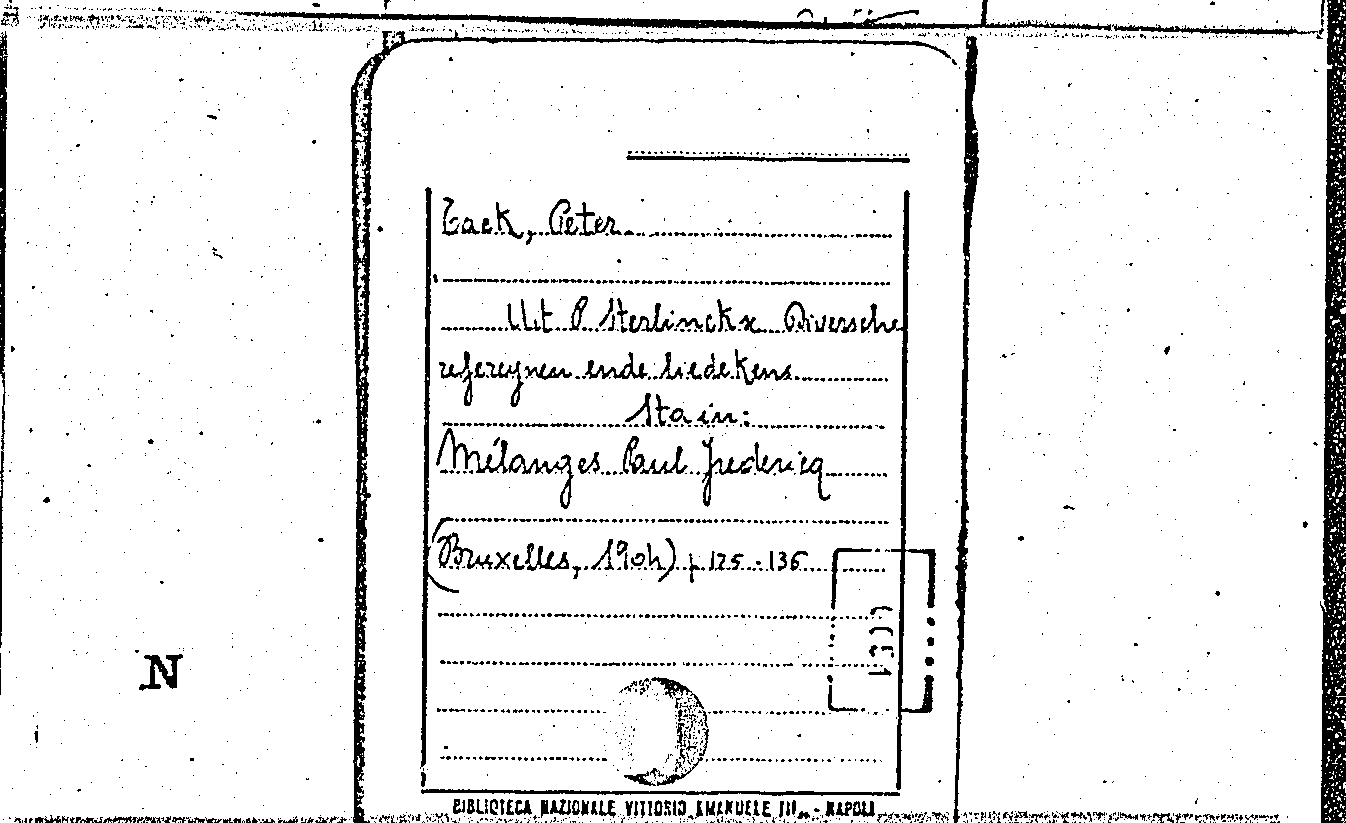 Tack, Peter.
Uit P Sterlinckx Diversche
refereynen ende liedekens
Sta in:
Mélanges Paul Fredericq
(Bruxelles, 1904) p 125-136
N
BIBLIOTECA NAZIONALE VITTORIO EMANUELE III - NAPOLI